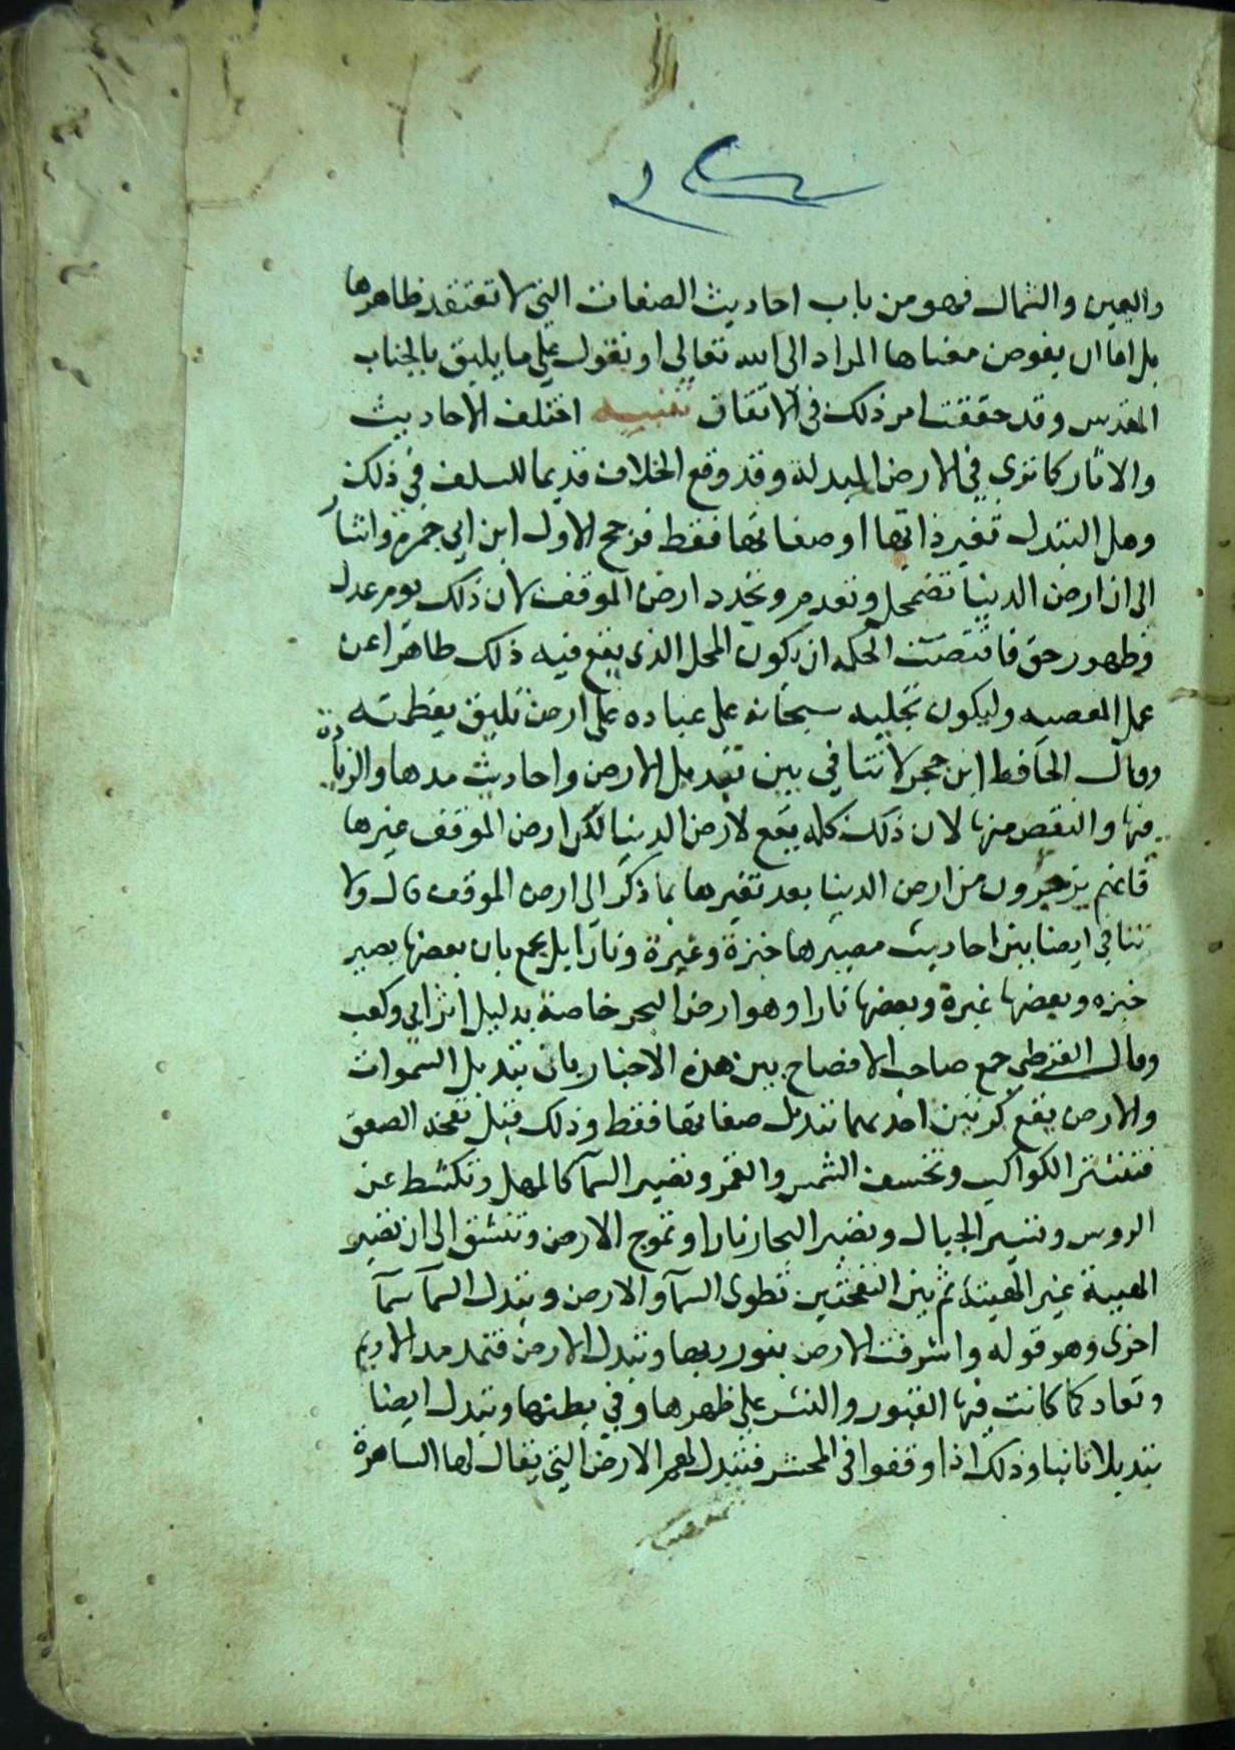 واليمين والشمال فهو من باب احاديث الصفات التي لا تعتقد ظاهرها
بل اما ان يفوض معناها المراد الى الله تعالى او نقول على ما يليق بالجناب
المقدس وقد حققت امر ذلك في الاتقان تنبيه اختلف الاحاديث
والاثار كما ترى في الارض المبدلة وقد وقع الخلاف قديما للسلف في ذلك
وهل التبدل تغير ذاتها او صفاتها فقط فرجح الاول ابن ابي جمرة واشار
الى ان ارض الدنيا تضمحل وتعدم وتجدد ارض الموقف لان ذلك يوم عدل
وظهور حق فاقتضت الحكمه ان يكون المحل الذى يقع فيه ذلك طاهرا عن
عمل المعصيه وليكون تجليه سبحانه على عباده على ارض تليق بعظمته
وقال الحافظ ابن حجر لا تنافي بين تبديل الارض واحاديث مدها والزيادة
فيها والنقص منها لان ذلك كله يقع لارض الدنيا لكن ارض الموقف غيرها
فانهم يزجرون من ارض الدنيا بعد تغيرها بما ذكر الى ارض الموقف قال ولا
تنافي ايضا بين احاديث مصيرها خبزة وغبرة ونارا بل يجمع بان بعضها يصير
خبزه وبعضها غبرة وبعضها نارا وهو ارض البحر خاصة بدليل اثر ابي وكعب
وقال القرطبي جمع صاحب الافصاح بين هذه الاخبار بان تبديل السموات
والارض يقع كرتين احديهما تبدل صفاتها فقط وذلك قبل نفخه الصعق
فتنتثر الكواكب وتخسف الشمس والقمر وتصير السمآ كالمهل وتكشط عن
الروس وتسير الجبال وتصير البحار نارا وتموج الارض وتنشق الى ان تصير
الهيئة غير الهيئة ثم بين النفختين تطوى السمآ والارض وتبدل السمآ سمآ
اخرى وهو قوله واشرقت الارض بنور ربها وتبدل الارض فتمد مد الاديم
وتعاد كما كانت فيها القبور والنشر على ظهرها وفي بطنها وتبدل ايضا
تبديلا ثانيا وذلك اذا وقفوا في المحشر فتبدل لهم الارض التي يقال لها الساهرة